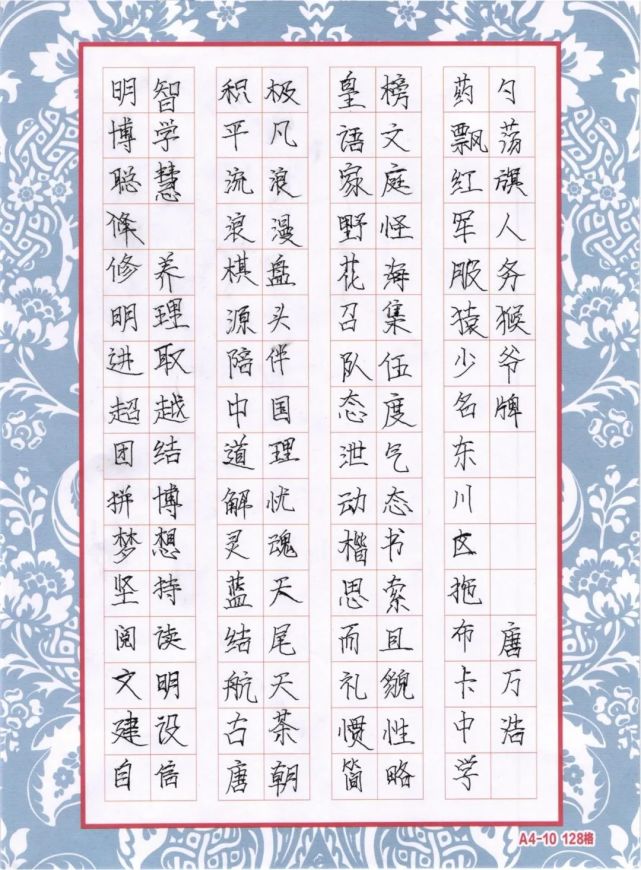 明智
博学
聪慧
修养
明理
进取
超越
团结
拼博
梦想
坚持
阅读
文明
建设
自信
积极
平凡
流浪
浪漫
棋盘
源头
陪伴
中国
道理
解忧
灵魂
蓝天
结尾
航天
古茶
唐朝
皇榜
语文
家庭
野怪
花海
召集
队伍
态度
泄气
动态
楷书
思索
而且
礼貌
惯性
简略
药勺
飘荡
红旗
军人
服务
猿猴
少爷
名牌
东川区拖布卡中学
唐万浩
A4-10 128格